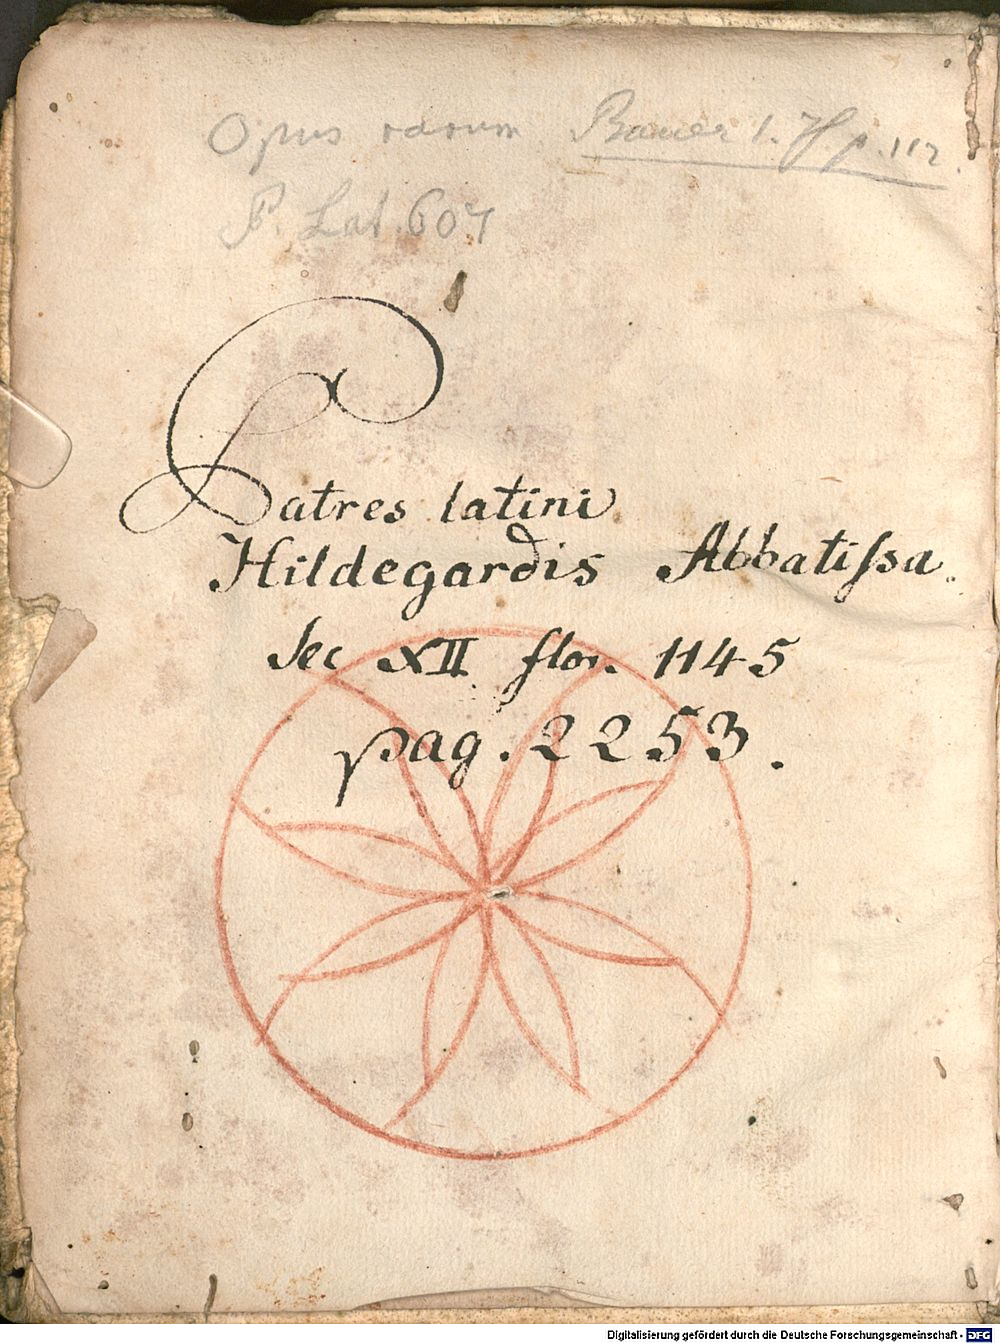 Opus rarum Bauer 1. H. p. 112
P. Lat. 607
Patres latini
Hildegardis Abbatiſsa.
Sec XII flor. 1145
pag. 2253.
Digitalisierung gefördert durch die Deutsche Forschungsgemeinschaft - DFG